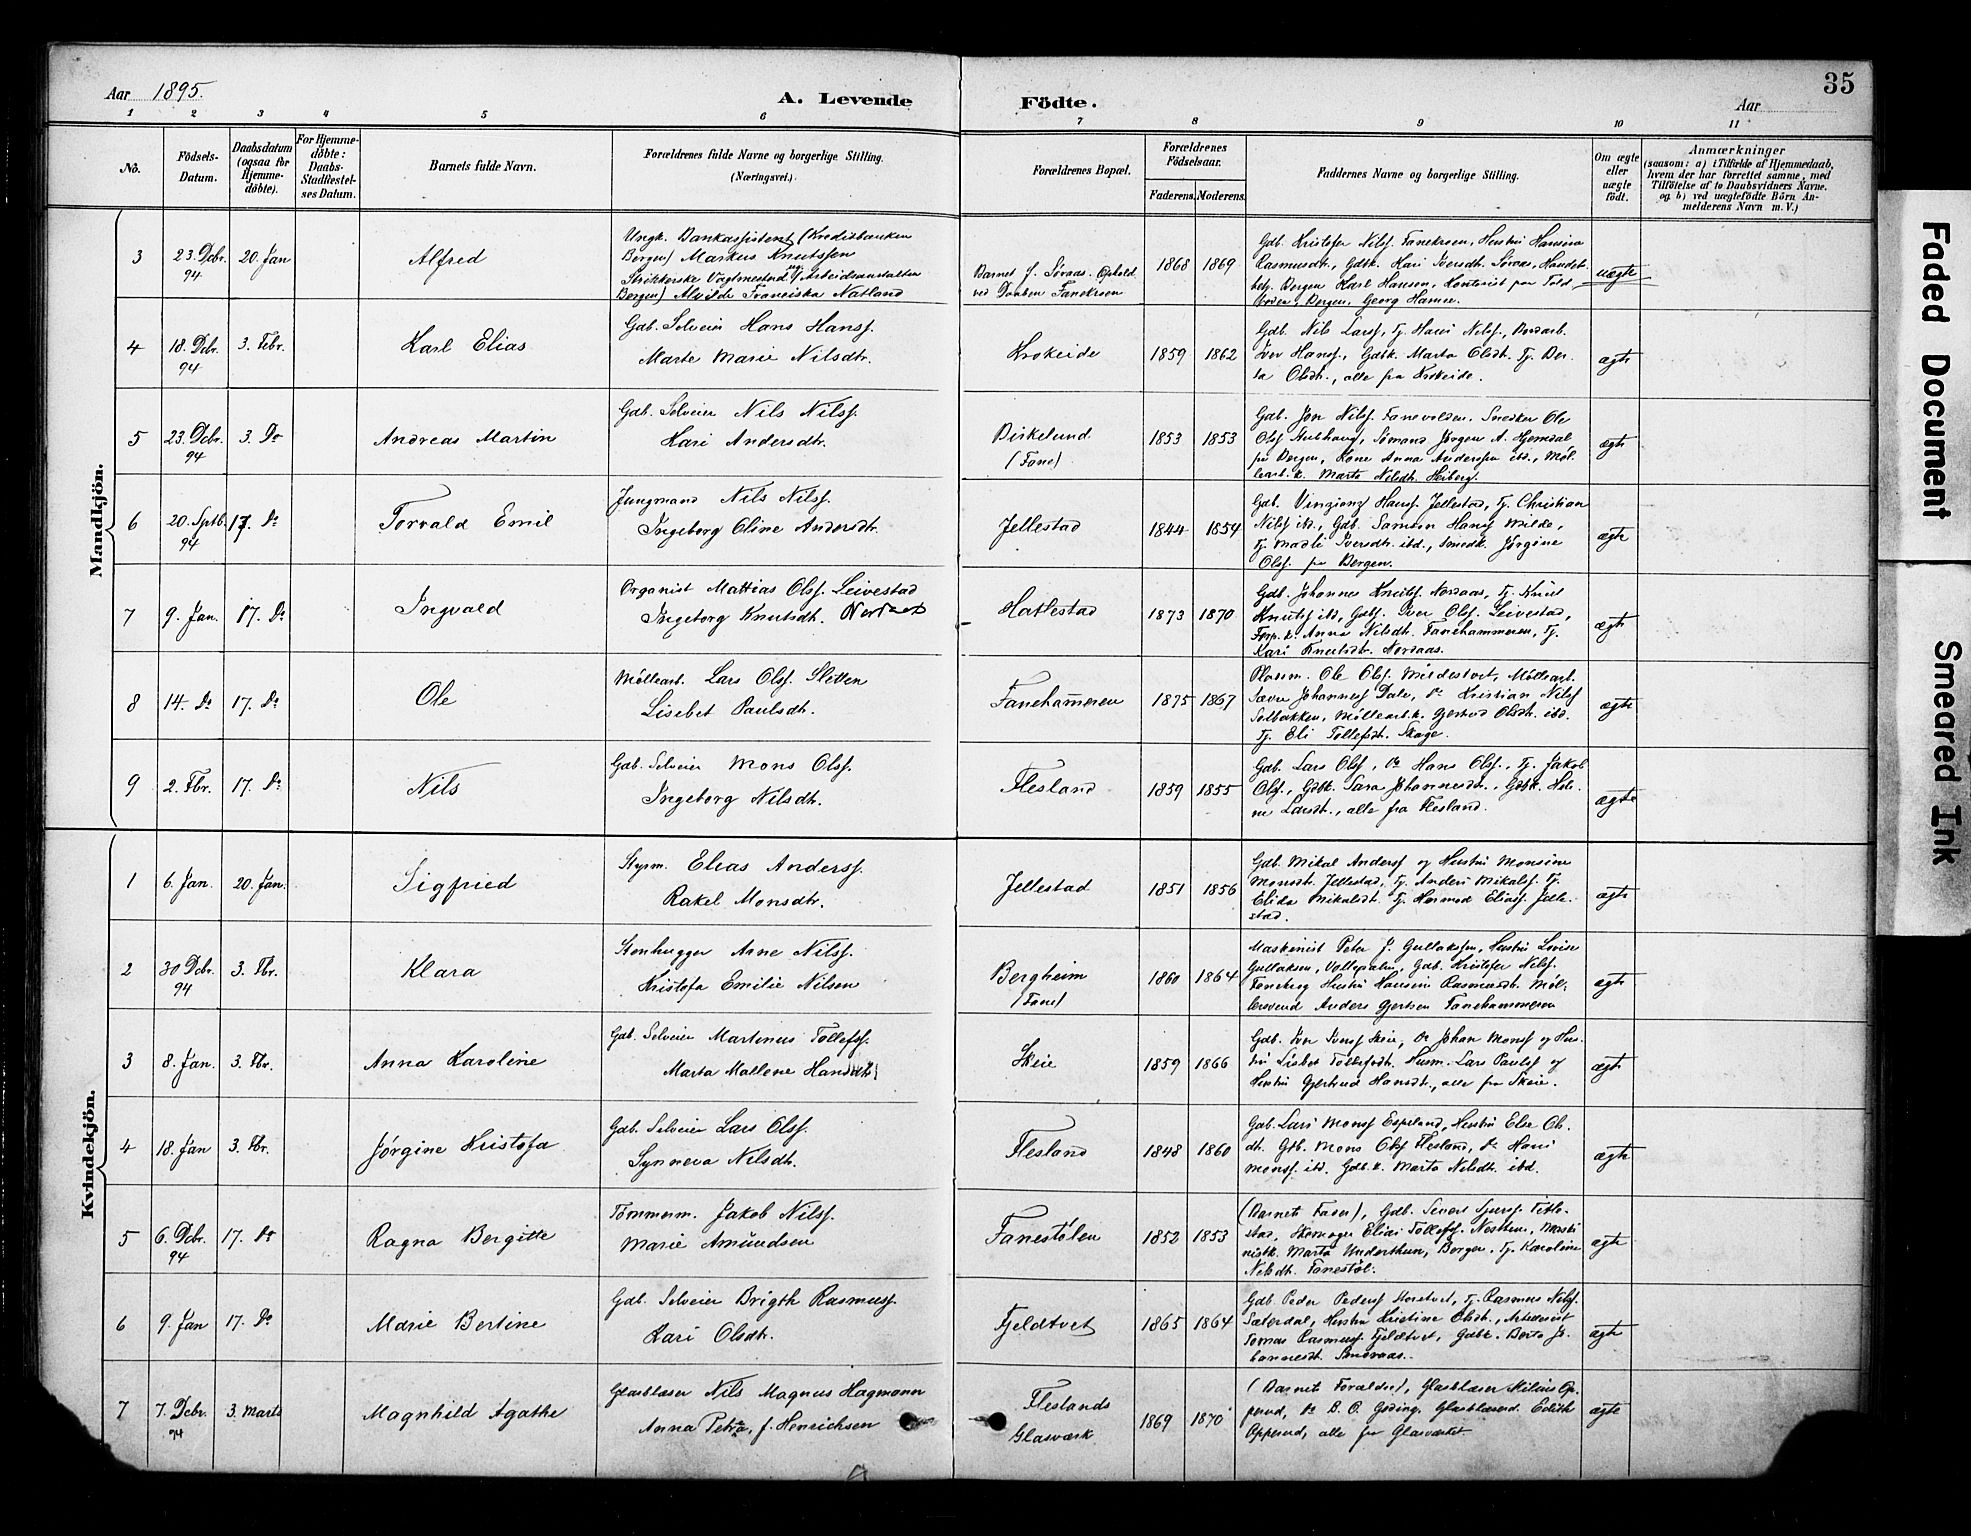 35
Aar 1895.
A. Levende Fødte.
Aar
1 2 3 4 5 6 7 8 9 10 11
No.
Födsels-Datum.
Daabsdatum (ogsaa for Hjemme-döbte).
For Hjemme-döbte: Daabs-Stadfæstel-ses Datum.
Barnets fulde Navn.
Forældrenes fulde Navne og borgerlige Stilling. (Næringsvei.)
Forældrenes Bopæl.
Forældrenes Födselsaar.
Faderens. Moderens.
Faddernes Navne og borgerlige Stilling.
Om ægte eller uægte födt.
Anmærkninger
(saasom: a) i Tilfælde af Hjemmedaab, hvem der har forrettet samme, med Tilföielse af to Daabsvidners Navne. og b) ved uægtefödte Börn An-melderens Navn m. V.)
Mandkjön.
3 23. Dcbr. 94 20. Jan Alfred
Ungk. Bankassistent (Kreditbanken
Bergen) Markus Knutssen
Bergen) Alvilde Franciska Natland
Barnet f. Søraas. Ophold
ved Daaben Fanekroen
1868 1869
Gdb. Kristofer Nilss. Fanekroen, Hustru Hansina
Rasmusdt., Gdbk. Kari Iversdt. Søraas, Handels
betj. Bergen Karl Hansen, Kontorist paa Told
boden, Bergen, Georg Hansen.
uægte
4 18. Dcbr. 94 3. Febr. Karl Elias
Gdb. Selveier Hans Hanss.
Marte Marie Nilsdtr.
Krokeide 1859 1862
Gdb. Nils Larss., Tj. Hans Nilss., Bordarb.
Iver Hanss., Gdbk. Marta Olsdt. Tj. Ber-
ta Olsdt., alle fra Krokeide.
ægte
5 23. Dcbr. 94 3. Do Andreas Martin
Gdb. Selveier Nils Nilss.
Kari Andersdtr.
Birkelund (Fane) 1853 1853
Gdb. Jon Nilss. Fanevolden. Snedker Ole
Olss. Stubhaug, Sømand Jørgen A. Hjemdal
fra Bergen, Kone Anna Anderssen ibd., Møl-
learb. k. Marta Nilsdt. Heiberg.
ægte
6 20. Sptb. 94 17. Do Torvald Emil
Jungmand Nils Nilss.
Ingeborg Oline Andersdtr.
Jellestad 1844 1854
Gdb. Vinzjanz Hanss. Jellestad, Tj. Christian
Nilss. ibd., Gdb. Samson Hanss. Milde,
Tj. Madli Iversdtr. ibd., Smedk. Jørgine
Olss. fra Bergen.
ægte
7 9. Jan. 17. Do Ingvald
Organist Mattias Olss. Leivestad
Ingeborg Knutsdt. Nordaas
Hatlestad 1873 1870
Gdb. Johannes Knutss. Nordaas, Tj. Knut
Knutss. ibd, Gdbs. Iver Olss. Leivestad,
Forp. k. Anna Nilsdt. Fanehammeren, Tj.
Kari Knutsdtr. Nordaas.
ægte
8 14. Do 17. Do Ole
Møllearb. Lars Olss. Sletten
Lisebet Paulsdt.
Fanehammeren 1875 1867
Pladsm. Ole Olss. Mildestvet, Møllearb.
Sævre Johanness. Dale, Do Kristian Nilss.
Solbakken, Møllearb. k. Gjertrud Olsdt. ibd.
Tj. Eli Tollefsdt. Skage.
ægte
9 2. Fbr. 17. Do Nils
Gdb. Selveier Mons Olss.
Ingeborg Nilsdt.
Flesland 1859 1855
Gdb. Lars Olss., Do Hans Olss., Tj. Jakob
Olss., Gdbk. Sara Johannesdt., Gdbk. Hele-
ne Larsdt., alle fra Flesland.
ægte
Kvindekjön.
1 6. Jan. 20. Jan. Sigfried
Styrm. Elias Anderss.
Rakel Monsdtr.
Jellestad 1851 1856
Gdb. Mikal Anderss. og Hustru Monsine
Monsdt. Jellestad, Tj. Anders Mikalss. Tj.
Elida Mikalsdt. Tj. Hermod Eliass. Jelle-
stad.
ægte
2 30 Dcbr. 94 3. Fbr. Klara
Stenhugger Arne Nilss.
Kristofa Emilie Nilsen
Bergheim (Fane) 1860 1864
Maskinist Peter J. Gullaksen, Hustru Lovise
Gullaksen, Gdb. Kristofer Nilss.
Hustru Hansine Rasmusdt. Møl-
lersvend Anders Gjertsen Fanehammeren
ægte
3 8. Jan. 3. Fbr. Anna Karoline
Gdb. Selveier Martinus Tollefss.
Marta Mallene Hansdtr.
Skeie 1859 1866
Gdb. Iver Iverss. Skeie, Do Johan Monss. og Hus-
tru Lisbet Tollefsdt. Husm. Lars Paulss. og
Hustru Gjertrud Hansdt., alle fra Skeie.
ægte
4 18. Jan 3. Fbr. Jørgine Kristofa
Gdb. Selveier Lars Olss.
Synneva Nilsdt.
Flesland 1848 1860
Gdb. Lars Monss. Espeland, Hustru Else Ols-
dt. Gdb. Mons Olss. Flesland, Do Hans
Monss. ibd. Gdb. k. Marta Nilsdt. ibd.
ægte
5 6. Dcbr. 94 17. Do Ragna Bergitte
Tømmerm. Jakob Nilss.
Marie Amundsen
Fanestølen 1852 1853
(Barnets Fader), Gdb. Sivert Sjurss. Title-
stad, Skomager Elias Tollefss. Nesttun, Maski
nistk. Marta Undertun, Bergen, Tj. Karoline
Nilsdt. Fanestøl.
ægte
6 9. Jan 17. Do Marie Bertine
Gdb. Selveier Brigth Rasmuss.
Kari Olsdt.
Fjeldtvet 1865 1864
Gdb. Peder Pederss. Storetvet, Tj. Rasmus Nilss.
Sæterdal, Hustru Kristine Olsdt.,
Tomas Rasmuss. Fjeldtvet, Gdbk. Berta Jo-
hannesdt. Smøraas.
ægte
7 7. Dcbr. 94 3. Marts Magnhild Agathe
Glasblæser Nils Magnus Hagmann
Anna Petra, f. Henrichsen
Fleslands Glasværk 1869 1870
(Barnets Forældre), Glasblæser Milius Op-
perud, Do B. O. Goding, Glasblæserd. Edith
Opperud, alle fra Glasværket.
ægte
Faded Document
Smeared Ink